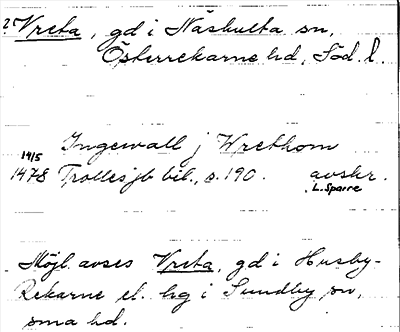 ? Vreta, gd i Näshulta sn,
Österrekarne hd, Söd. l.
Ingewall j Wrethom
14 15/5 78 Trolles jb bil., s. 190. avskr.
L. Sparre
Möjl. avses Vreta, gd i Husby-
Rekarne el. hg i Sundby sn,
sma hd.